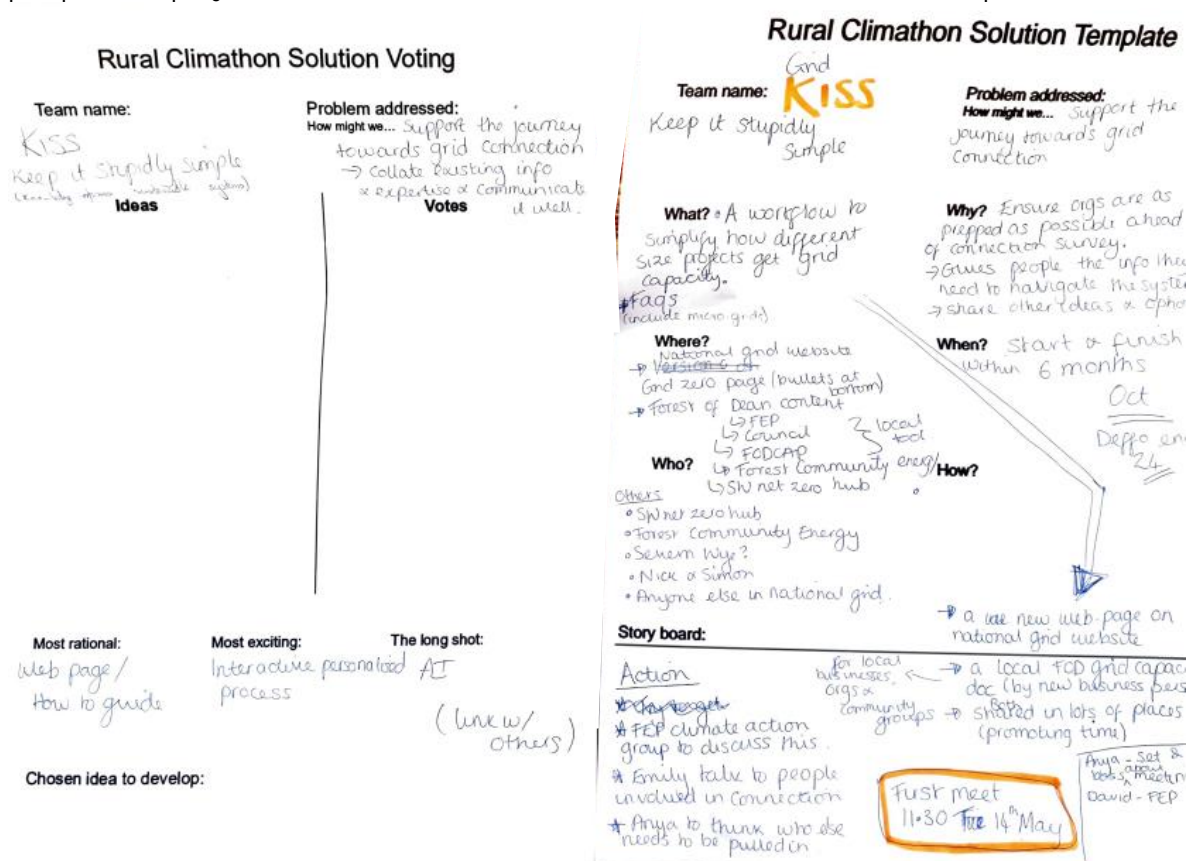 Rural Climathon Solution Voting
Team name:
KISS
Keep it stupidly simple
Problem addressed:
How might we... support the journey
towards grid connection
→ Collate existing info
& expertise & communicate
it well.
Ideas
Votes
Most rational:
Web page/
How to guide
Most exciting:
Interactive personalised
process
The long shot:
AI
(link w/
others)
Chosen idea to develop:
Rural Climathon Solution Template
Team name:
Grid
KISS
Keep it stupidly
Simple
Problem addressed:
How might we... support the
journey towards grid
connection
What? • A workflow to
simplify how different
size projects get grid
capacity.
Faqs
(include micro-grids)
Why? Ensure orgs are as
prepped as possible ahead
of connection survey.
→ Gives people the info
need to navigate the
→ share other ideas &
Where?
National grid website
Grid zero page (bullets at
bottom)
→ Forest of Dean content
↳ FEP
↳ Council
↳ FODCAP
↳ Forest Community energy
↳ SW net zero hub
local
tool
When? Start & finish
within 6 months
Oct
Deffo
24
Who?
Others
• SW net zero hub
• Forest Community Energy
• Severn Wye?
• Nick & Simon
• Anyone else in national grid.
How?
→ a new web page on
national grid website
Story board:
→ a local FOD grid
doc (by new business
→ shared in lots of places
(promoting time)
for local
businesses,
orgs &
community
groups
Action
* FEP climate action
group to discuss this.
* Emily talk to people
involved in connection
* Anya to think who else
needs to be pulled in
First meet
11.30 Tue 14th May
Anya - set &
boss about
David - FEP